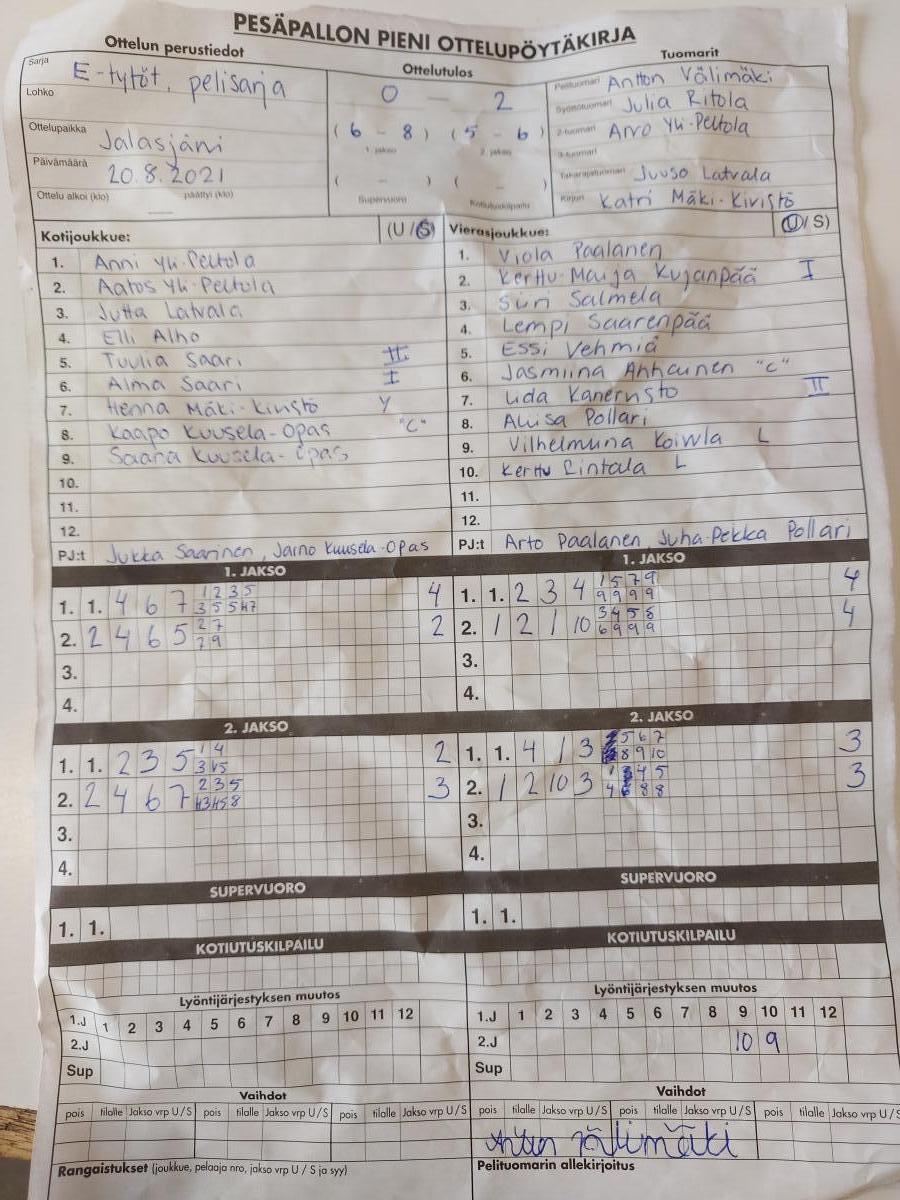 PESÄPALLON PIENI OTTELUPÖYTÄKIRJA
Ottelun perustiedot
Ottelutulos
Tuomarit
Sarja E-tytöt, pelisarja
Lohko
Ottelupaikka Jalasjärvi
Päivämäärä 20.8.2021
Ottelu alkoi (klo) päättyi (klo)
0 — 2
(6 - 8) (5 - 6)
1. jakso 2. jakso
( - ) ( - )
Supervuoro Kotiutuskilpailu
Pelituomari Antton Välimäki
Syöttötuomari Julia Ritola
2-tuomari Arvo Yli-Peltola
3-tuomari
Takarajatuomari Juuso Latvala
Kirjuri Katri Mäki-Kivistö
Kotijoukkue: (U/S)
1. Anni Yli-Peltola
2. Aatos Yli-Peltola
3. Jutta Latvala
4. Elli Alho
5. Tuulia Saari II
6. Alma Saari I
7. Henna Mäki-Kivistö Y
8. Kaapo Kuusela-Opas "C"
9. Saana Kuusela-Opas
10.
11.
12.
PJ:t Jukka Saarinen, Jarno Kuusela-Opas
Vierasjoukkue: (U/S)
1. Viola Paalanen
2. Kerttu-Maija Kujanpää I
3. Siiri Salmela
4. Lempi Saarenpää
5. Essi Vehmiä
6. Jasmiina Ahhainen "C"
7. Iida Kanernsto II
8. Aliisa Pollari
9. Vilhelmiina Koivula L
10. Kerttu Rintala L
11.
12.
PJ:t Arto Paalanen, Juha-Pekka Pollari
1. JAKSO
1. 1. 4 6 7 1 2 3 5 4
2. 2 4 6 5 2 7 2
3.
4.
1. JAKSO
1. 1. 2 3 4 1 5 7 9 4
9 9 9 9
2. 1 2 1 10 3 4 5 8 4
6 9 9 9
3.
4.
2. JAKSO
1. 1. 2 3 5 1 4 2
2. 2 4 6 7 2 3 5 3
3.
4.
2. JAKSO
1. 1. 4 1 3 5 6 7 3
8 9 10
2. 1 2 10 3 4 5 3
8 8
3.
4.
SUPERVUORO
1. 1.
SUPERVUORO
1. 1.
KOTIUTUSKILPAILU
KOTIUTUSKILPAILU
Lyöntijärjestyksen muutos
1.J 1 2 3 4 5 6 7 8 9 10 11 12
2.J
Sup
Lyöntijärjestyksen muutos
1.J 1 2 3 4 5 6 7 8 9 10 11 12
2.J 10 9
Sup
Vaihdot
pois tilalle Jakso vrp U/S pois tilalle Jakso vrp U/S pois tilalle Jakso vrp U/S
Vaihdot
pois tilalle Jakso vrp U/S pois tilalle Jakso vrp U/S pois tilalle Jakso vrp U/S
Antton Välimäki
Rangaistukset (joukkue, pelaaja nro, jakso vrp U / S ja syy)
Pelituomarin allekirjoitus